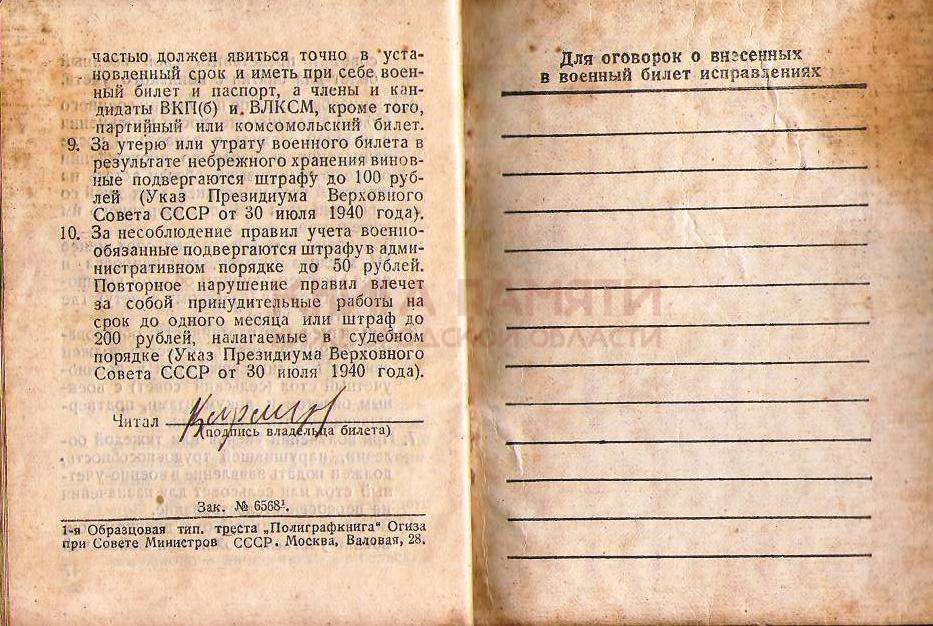 частью должен явиться точно в уста-
новленный срок и иметь при себе воен-
ный билет и паспорт, а члены и кан-
дидаты ВКП(б) и ВЛКСМ, кроме того,
партийный или комсомольский билет.
9. За утерю или утрату военного билета в
результате небрежного хранения винов-
ные подвергаются штрафу до 100 руб-
лей (Указ Президиума Верховного
Совета СССР от 30 июля 1940 года).
10. За несоблюдение правил учета военно-
обязанные подвергаются штрафу в адми-
нистративном порядке до 50 рублей.
Повторное нарушение правил влечет
за собой принудительные работы на
срок до одного месяца или штраф до
200 рублей, налагаемые в судебном
порядке (Указ Президиума Верховного
Совета СССР от 30 июля 1940 года).
Читал
(подпись владельца билета)
Зак. № 6568¹.
1-я Образцовая тип. треста „Полиграфкнига“ Огиза
при Совете Министров СССР. Москва, Валовая, 28.
Для оговорок о внесенных
в военный билет исправлениях
ПАМЯТИ
ОБЛАСТИ